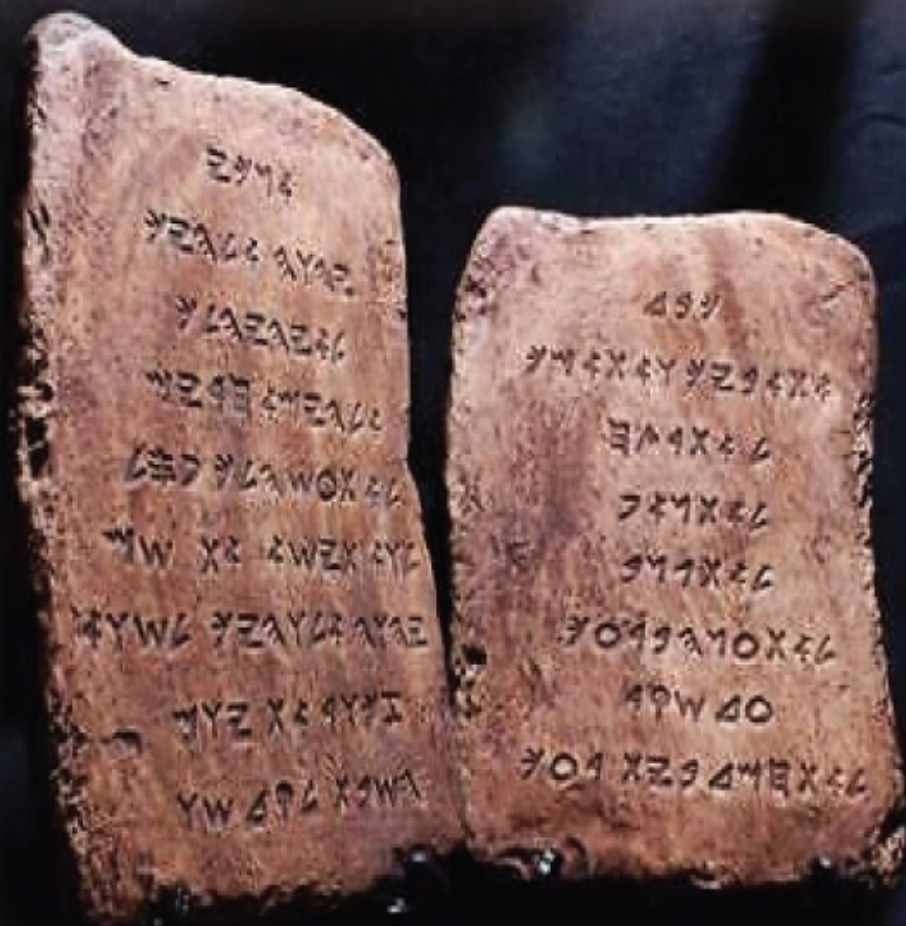 𐤀𐤍𐤊𐤉
𐤉𐤄𐤅𐤄 𐤀𐤋𐤄𐤉𐤊
𐤋𐤀 𐤉𐤄𐤉𐤄 𐤋𐤊
𐤀𐤋𐤄𐤉𐤌 𐤀𐤇𐤓𐤉𐤌
𐤋𐤀 𐤕𐤏𐤔𐤄 𐤋𐤊 𐤐𐤎𐤋
𐤋𐤀 𐤕𐤉𐤔𐤀 𐤀𐤕 𐤔𐤌
𐤉𐤄𐤅𐤄 𐤀𐤋𐤅𐤄𐤉𐤊 𐤋𐤔𐤅𐤀
𐤆𐤊𐤅𐤓 𐤀𐤕 𐤉𐤅𐤌
𐤄𐤔𐤁𐤕 𐤋𐤒𐤃𐤔𐤅
𐤊𐤁𐤃
𐤀𐤕 𐤀𐤁𐤉𐤊 𐤅𐤀𐤕 𐤀𐤌𐤊
𐤋𐤀 𐤕𐤓𐤑𐤇
𐤋𐤀 𐤕𐤍𐤀𐤐
𐤋𐤀 𐤕𐤂𐤍𐤁
𐤋𐤀 𐤕𐤏𐤍𐤄 𐤁𐤓𐤏𐤊
𐤏𐤃 𐤔𐤒𐤓
𐤋𐤀 𐤕𐤇𐤌𐤃 𐤁𐤉𐤕 𐤓𐤏𐤊